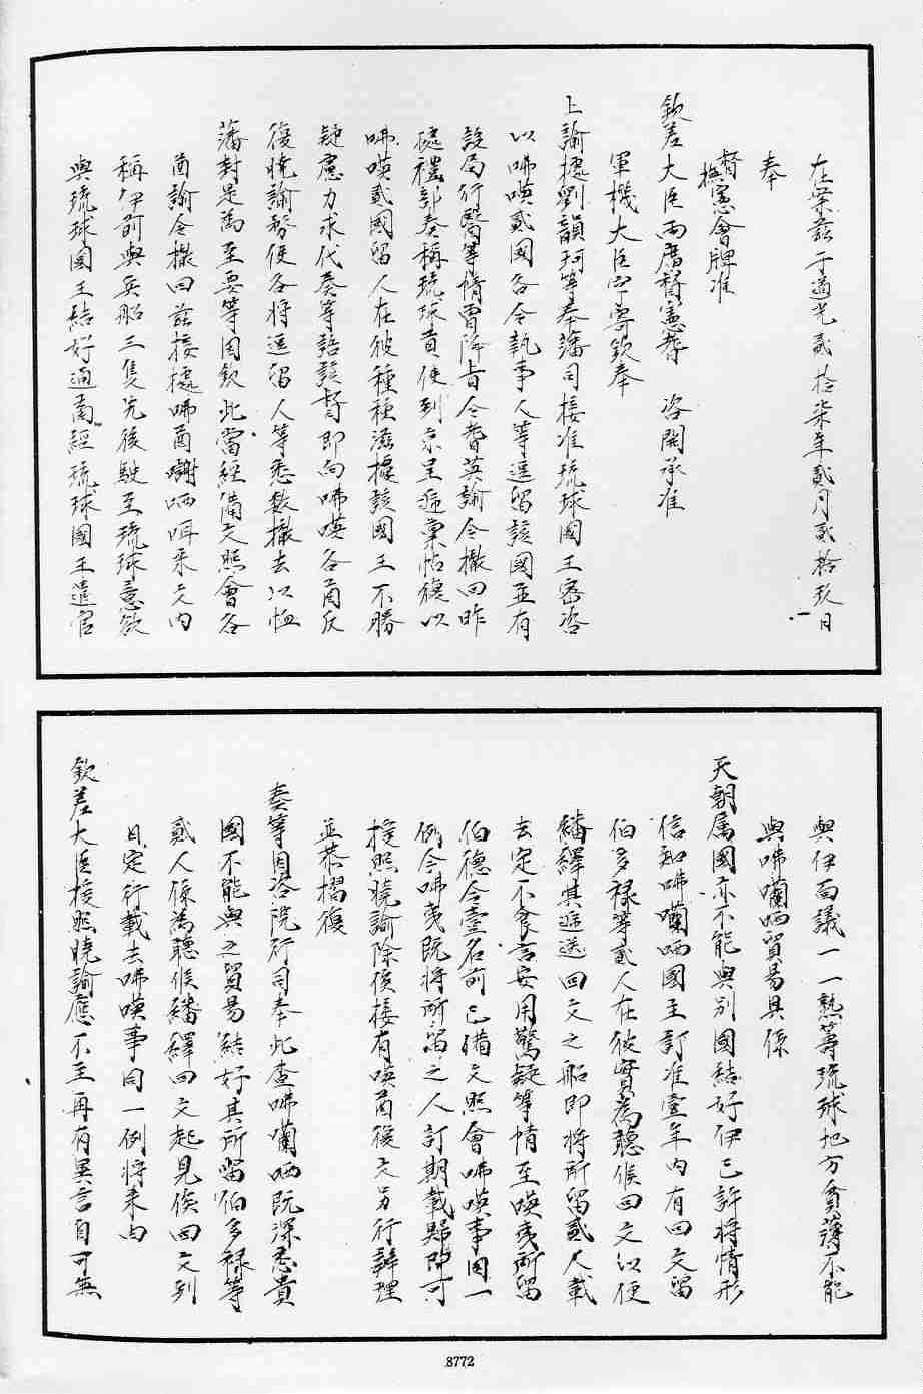 在案茲于道光貳拾柒年貳月貳拾玖日
奉
督撫憲會牌准
欽差大臣兩廣督憲耆　咨開承准
軍機大臣字寄欽奉
上諭據劉韻珂等奏藩司接准琉球國王密咨
以咈𠸄貳國各令執事人等逗留該國並有
設局行醫等情曾降旨令耆英諭令撤回昨
據禮部奏稱琉球貢使到京呈遞稟帖復以
咈𠸄貳國留人在彼種種滋擾該國王不勝
疑慮力求代奏等語該督即向咈𠸄各酋反
復曉諭務使各將逗留人等悉數撤去以恤
藩封是為至要等因欽此當經備文照會各
酋諭令撤回茲接據咈酋㖼哂咡來文內
稱伊前與兵船三隻先後駛至琉球意欲
與琉球國王結好通商經琉球國王遣官
與伊面議一一熟籌琉球地方貧薄不能
與咈囒哂貿易具係
天朝屬國亦不能與別國結好伊已許將情形
信知咈囒哂國主訂准壹年內有回文留
伯多祿等貳人在彼實為聽候回文以便
繙繹其遞送回文之船即將所留貳人載
去定不食言安用驚疑等情至𠸄夷所留
伯德令壹名前已備文照會咈𠸄事同一
例今咈夷既將所留之人訂期載歸即可
援照曉諭除俟接有𠸄酋復文另行辦理
並恭摺復
奏等因咨院行司奉此查咈囒哂既深悉貴
國不能與之貿易結好其所留伯多祿等
貳人係為聽候繙繹回文起見俟回文到
日定行載去咈𠸄事同一例將來由
欽差大臣援照曉諭應不至再有異言自可無
8772